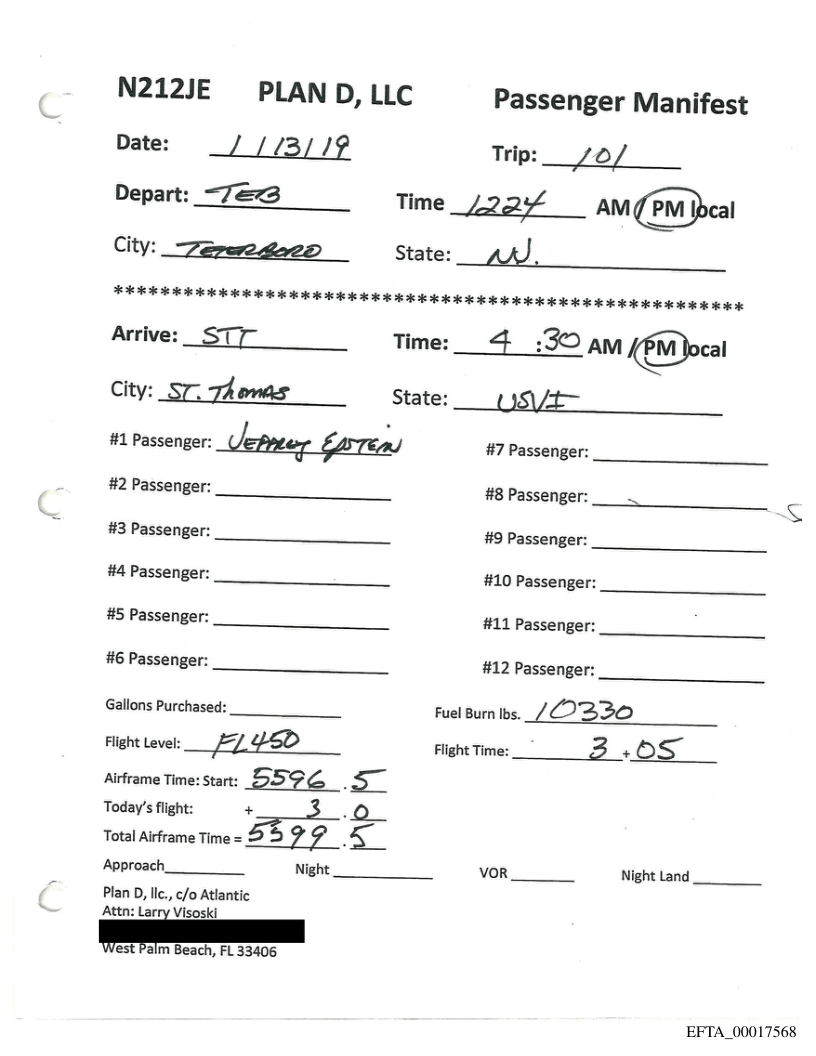 N212JE PLAN D, LLC Passenger Manifest
Date: 1/13/19 Trip: 101
Depart: TEB Time 1224 AM / PM local
City: TETERBORO State: NJ.
******************************************************
Arrive: STT Time: 4 :30 AM / PM local
City: ST. Thomas State: USVI
#1 Passenger: JEFFREY EPSTEIN #7 Passenger:
#2 Passenger: #8 Passenger:
#3 Passenger: #9 Passenger:
#4 Passenger: #10 Passenger:
#5 Passenger: #11 Passenger:
#6 Passenger: #12 Passenger:
Gallons Purchased: Fuel Burn lbs. 10330
Flight Level: FL450 Flight Time: 3 + 05
Airframe Time: Start: 5596 . 5
Today's flight: + 3 . 0
Total Airframe Time = 5599 . 5
Approach Night VOR Night Land
Plan D, llc., c/o Atlantic
Attn: Larry Visoski
West Palm Beach, FL 33406
EFTA_00017568